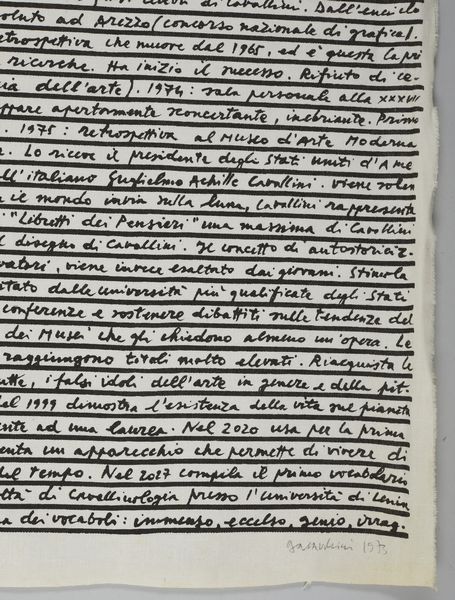 di Cavallini. Dall'enciclo
soluto ad Arezzo (concorso nazionale di grafica).
retrospettiva che muove dal 1965, ed è questa la pri
ricerche. Ha inizio il successo. Rifiuto di ce-
cia dell'arte). 1974: sala personale alla XXXVII
appare apertamente sconcertante, inebriante. Primo
. 1975: retrospettiva al Museo d'Arte Moderna
. Lo riceve il presidente degli Stati Uniti d'Ame
ell'italiano Guglielmo Achille Cavallini. Viene solen
il mondo invia sulla luna, Cavallini rappresenta
. "Libretti dei Pensieri" una massima di Cavallini
l disegno di Cavallini. Il concetto di autostoriciz-
vatori, viene invece esaltato dai giovani. Stimola
itato dalle università più qualificate degli Stati
conferenze e sostenere dibattiti sulle tendenze del
dei Musei che gli chiedono almeno un'opera. Le
raggiungono titoli molto elevati. Riacquista le
utte, i falsi idoli dell'arte in genere e della pit-
Nel 1999 dimostra l'esistenza della vita sul pianeta
ente ad una laurea. Nel 2020 usa per la prima
enta un apparecchio che permette di vivere di
del tempo. Nel 2027 compila il primo vocabolario
oltà di Cavellinologia presso l'università di Lenin
a dei vocaboli: immenso, eccelso, genio, irrag-
1973